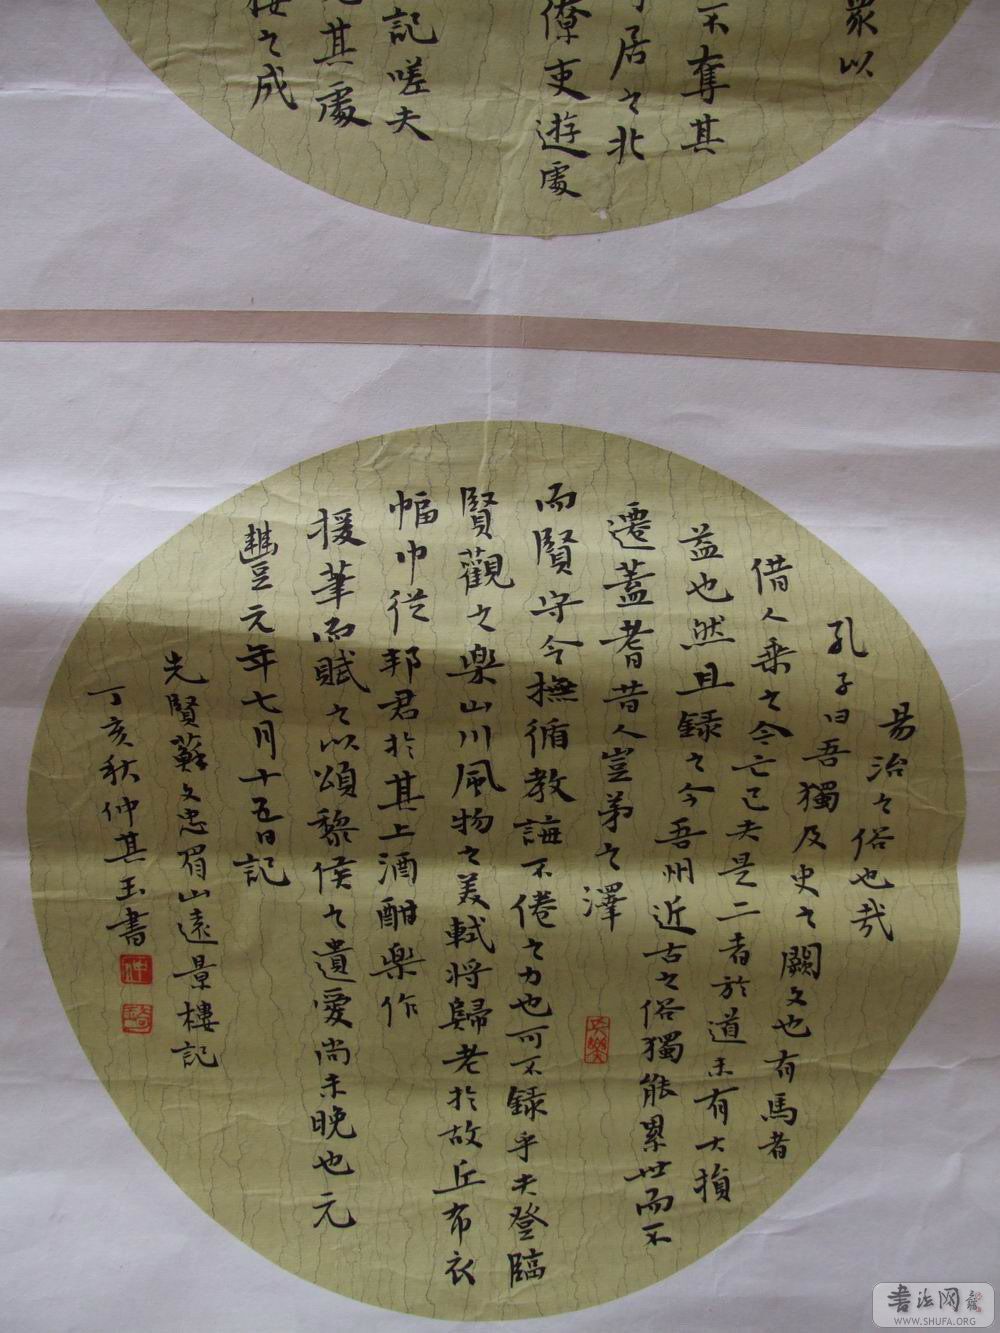 眾以
不奪其
居之北
僚吏遊處
記嗟夫
其處
樓之成
易治之俗也哉
孔子曰吾獨及史之闕文也有馬者
借人乘之今亡已夫是二者於道未有大損
益也然且錄之今吾州近古之俗獨能累世而不
遷蓋耆昔人豈弟之澤
而賢守令撫循教誨不倦之力也可不錄乎夫登臨
賢觀之樂山川風物之美軾將歸老於故丘布衣
幅巾從邦君於其上酒酣樂作
援筆而賦之以頌黎侯之遺愛尚未晚也元
豐元年七月十五日記
先賢蘇文忠眉山遠景樓記
丁亥秋仲其玉書
仲
书法网
WWW.SHUFA.ORG